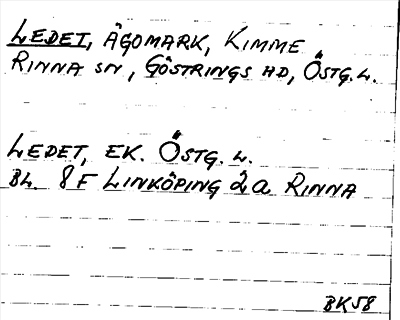 LEDET, ÄGOMARK, KIMME
RINNA SN, GÖSTRINGS HD, ÖSTG. L.
LEDET, EK. ÖSTG. L.
BL. 8 F LINKÖPING 2a RINNA
BK58